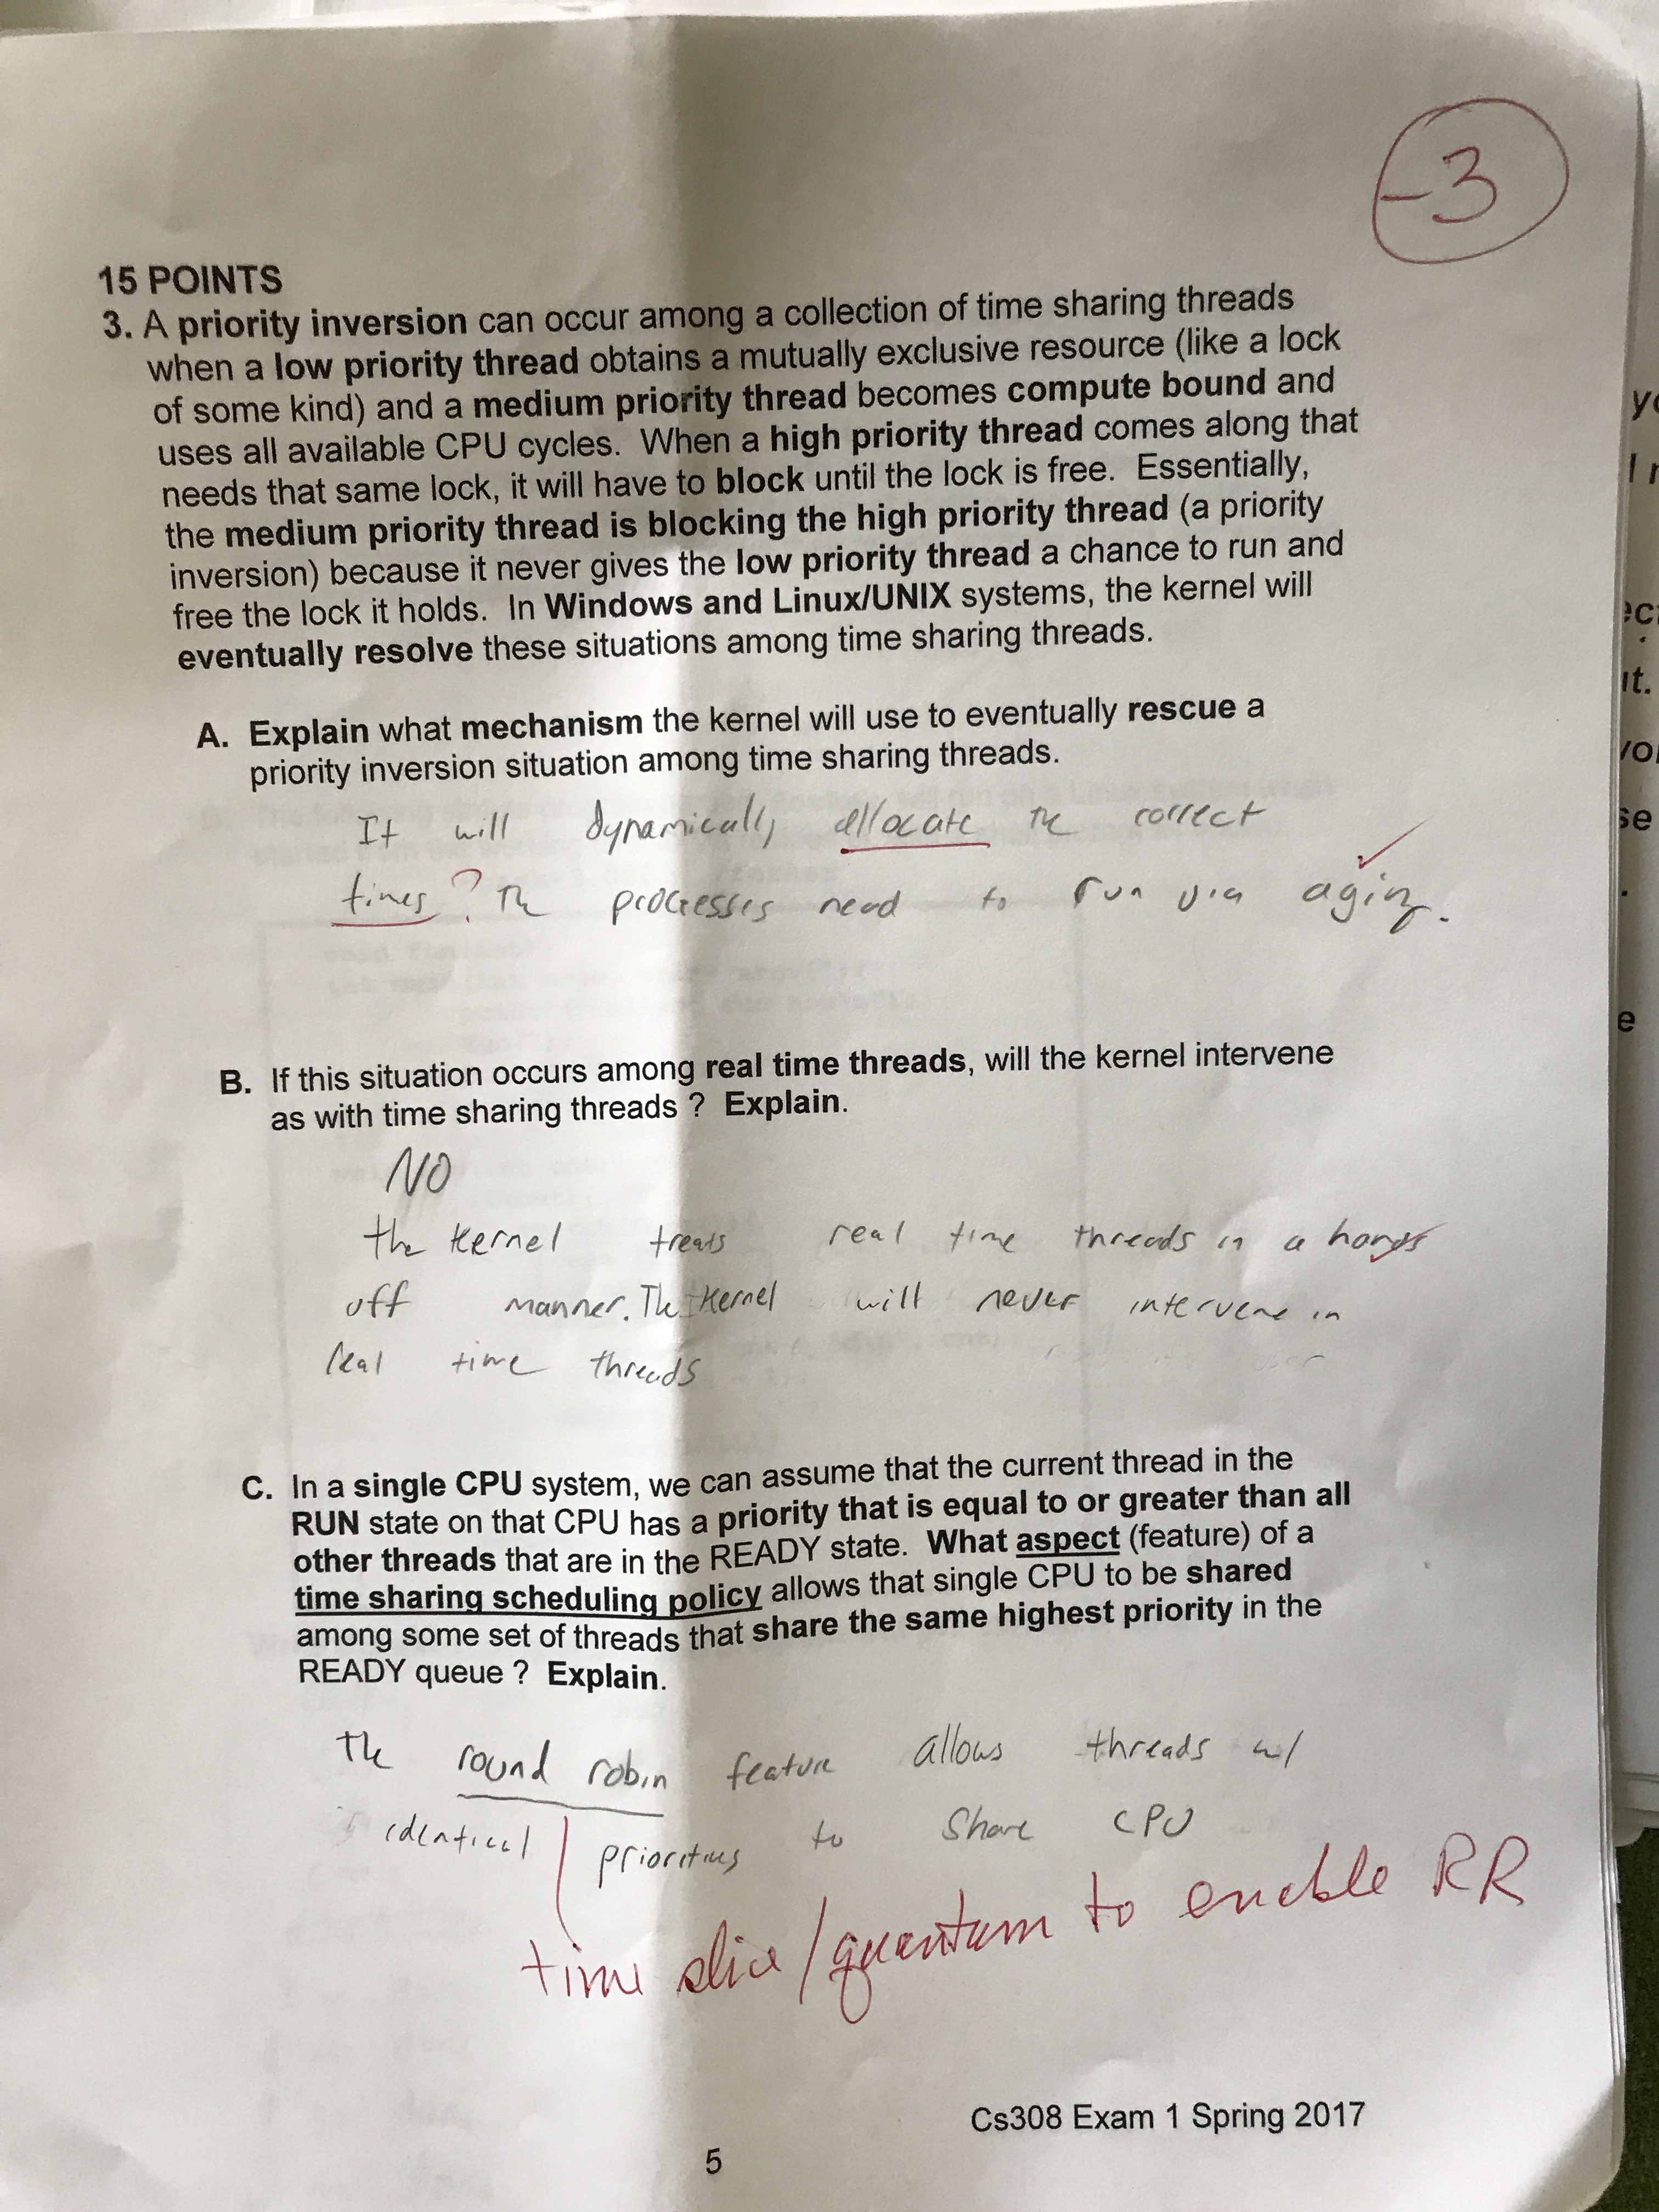 -3
15 POINTS
3. A priority inversion can occur among a collection of time sharing threads
when a low priority thread obtains a mutually exclusive resource (like a lock
of some kind) and a medium priority thread becomes compute bound and
uses all available CPU cycles. When a high priority thread comes along that
needs that same lock, it will have to block until the lock is free. Essentially,
the medium priority thread is blocking the high priority thread (a priority
inversion) because it never gives the low priority thread a chance to run and
free the lock it holds. In Windows and Linux/UNIX systems, the kernel will
eventually resolve these situations among time sharing threads.
A. Explain what mechanism the kernel will use to eventually rescue a
priority inversion situation among time sharing threads.
It will dynamically allocate the correct
times ? The processes need to run via aging.
B. If this situation occurs among real time threads, will the kernel intervene
as with time sharing threads ? Explain.
NO
the kernel treats real time threads in a hands
off manner. The kernel will never intervene in
real time threads
C. In a single CPU system, we can assume that the current thread in the
RUN state on that CPU has a priority that is equal to or greater than all
other threads that are in the READY state. What aspect (feature) of a
time sharing scheduling policy allows that single CPU to be shared
among some set of threads that share the same highest priority in the
READY queue ? Explain.
The round robin feature allows threads w/
identical priorities to share CPU
time slice/quantum to enable RR
Cs308 Exam 1 Spring 2017
5